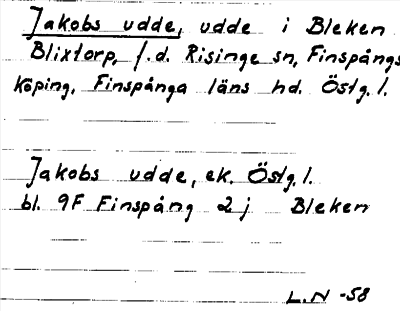 Jakobs udde, udde i Bleken
Blixtorp, f.d. Risinge sn, Finspångs
köping, Finspånga läns hd. Östg.l.
Jakobs udde, ek. Östg.l.
bl. 9F Finspång 2j Bleken
L.N -58